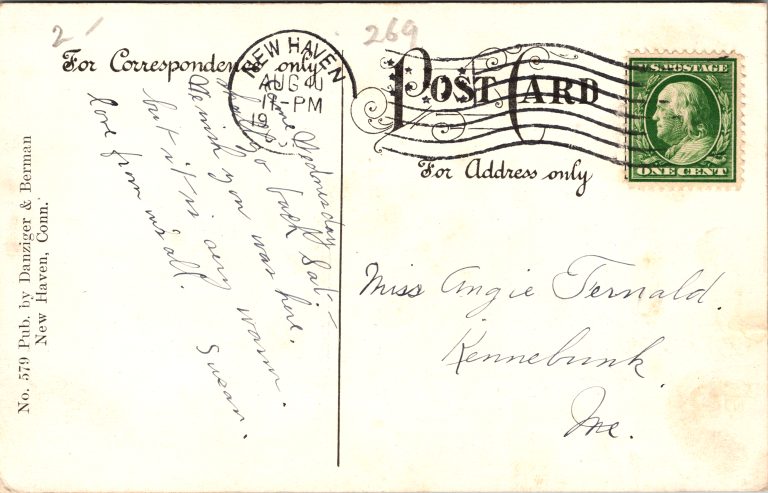 2
269
For Correspondence only
NEW HAVEN
AUG 4
11-PM
19
POST CARD
For Address only
U.S. POSTAGE
ONE CENT
Came Wednesday
shall go back Sat. –
We wish you was here.
but it is very warm.
love from us all.
Susan.
Miss Angie Fernald.
Kennebunk
Me.
No. 579 Pub. by Danziger & Berman
New Haven, Conn.